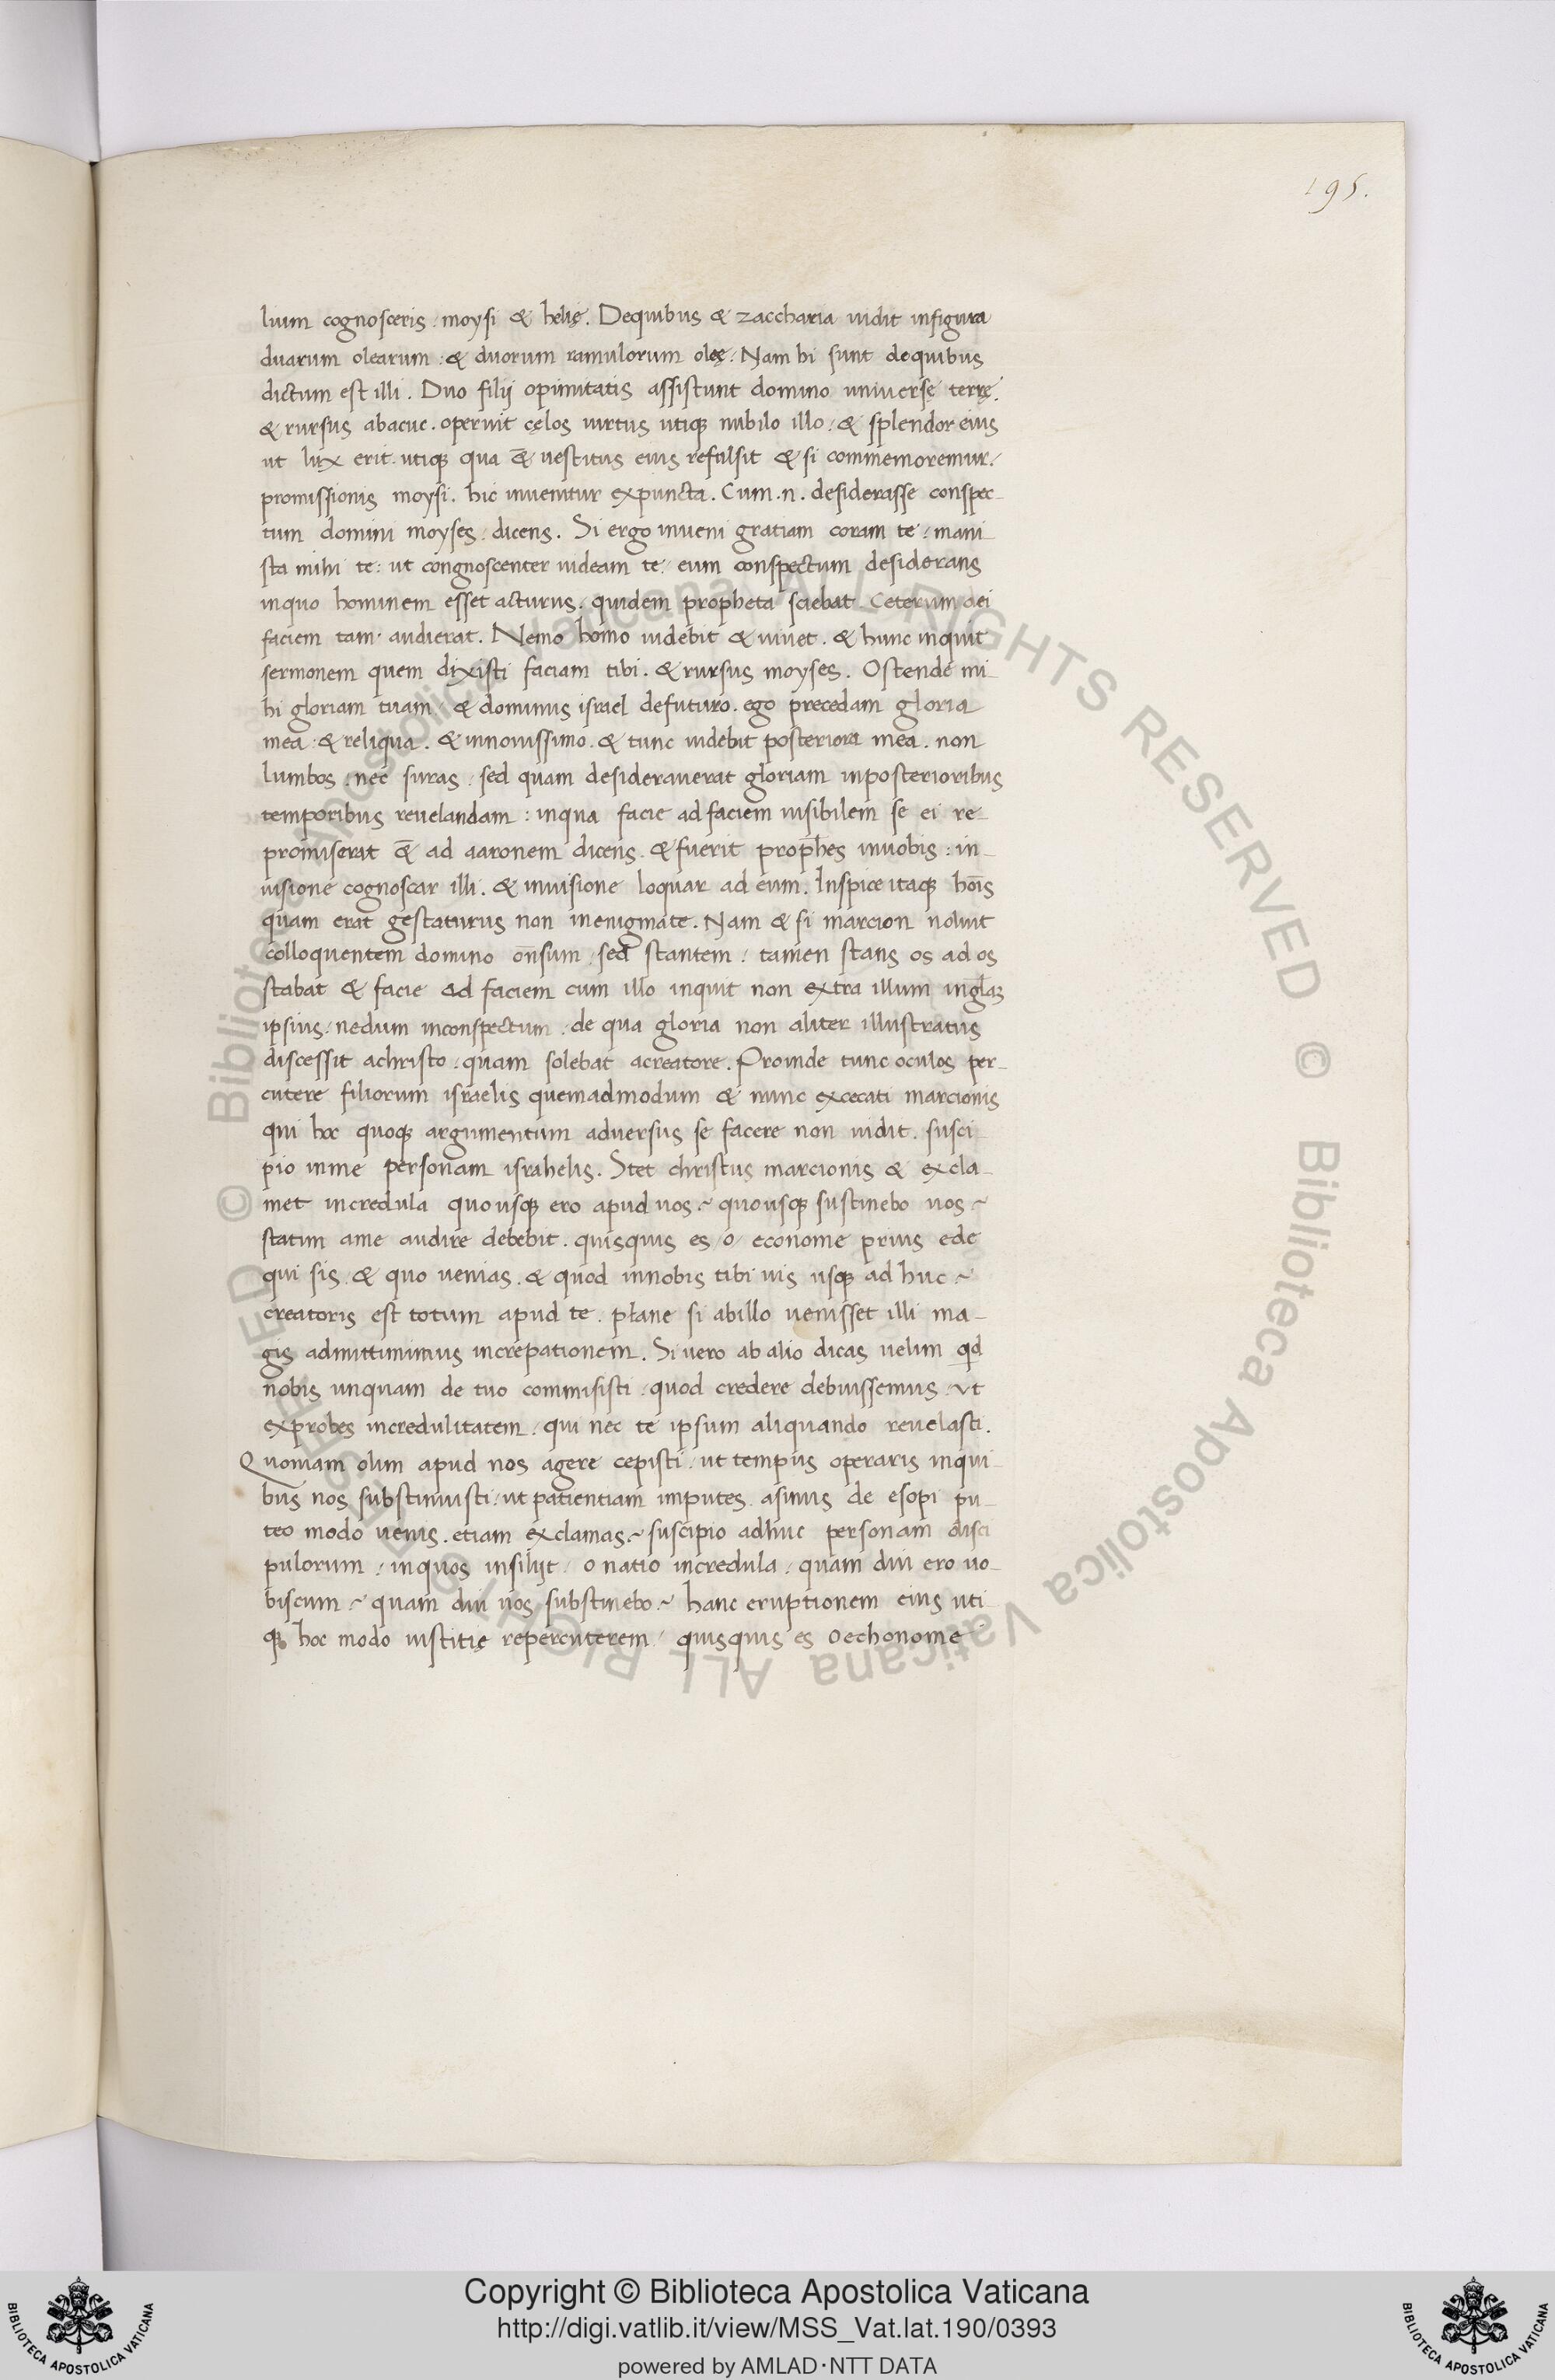 195.
lium cognosceris : moysi & helię. Dequibus & zaccharia uidit infigura
duarum olearum : & duorum ramulorum olęę. Nam hi sunt dequibus
dictum est illi . Duo filij opimitatis assistunt domino universę terrę.
& rursus abacuc . operuit cęlos uirtus utiqꝫ nubilo illo : & splendor eius
ut lux erit . utiqꝫ qua &̄ uestitus eius refulsit & si commemoremur
promissionis moysi . hic inuenitur expuncta . Cum .n. desiderasse conspec-
tum domini moyses : dicens . Si ergo inueni gratiam coram te : mani-
sta mihi te : ut congnoscenter uideam te : eum conspectum desiderans
inquo hominem esset acturus . quidem propheta sciebat . Ceterum dei
faciem tam audierat . Nemo homo uidebit & uiuet . & hunc inquit
sermonem quem dixisti faciam tibi . & rursus moyses . Ostende mi-
hi gloriam tuam : & dominus israel defuturo . ego precedam gloria
mea : & reliqua . & innouissimo . & tunc uidebit posteriora mea . non
lumbos : nec suras : sed quam desiderauerat gloriam inposterioribus
temporibus reuelandam : inqua facie ad faciem uisibilem se ei re-
promiserat &̄ ad aaronem dicens . & fuerit prop̄hes inuobis : in-
uisione cognoscar illi . & inuisione loquar ad eum . Inspice itaqꝫ hoı̄s
quam erat gestaturus non inenigmate . Nam & si marcion noluit
colloquentem domino on̄sum : sed stantem : tamen stans os ad os
stabat & facie ad faciem cum illo inquit non extra illum ingl̄aꝫ
ipsius : nedum inconspectum : de qua gloria non aliter illustratus
discessit achristo : quam solebat acreatore . Proinde tunc oculos per-
cutere filiorum israelis quemadmodum & nunc excecati marcionis
qui hoc quoqꝫ argumentum adversus se facere non uidit . susci-
pio inme personam israhelis . Stet christus marcionis & excla-
met incredula quousqꝫ ero apud uos ~ quousqꝫ sustinebo uos ~
statim ame audire debebit . quisquis es /o/ econome prius ede
qui sis . & quo uenias . & quod innobis tibi uis usqꝫ ad huc ~
creatoris est totum apud te . plane si abillo uenisset illi ma-
gis admittimimus increpationem . Si uero ab alio dicas uelim qd
nobis unquam de tuo commisisti : quod credere debuissemus . ut
exprobes incredulitatem : qui nec te ipsum aliquando reuelasti .
Quoniam olim apud nos agere cepisti : ut tempus operaris inqui-
bus nos substinuisti : ut patientiam imputes . asinus de esopi pu-
teo modo uenis . etiam exclamas ~ suscipio adhuc personam disci
pulorum : inquos insilijt : o natio incredula : quam diu ero uo-
biscum ~ quam diu uos substinebo ~ hanc eruptionem eius uti-
qꝫ hoc modo iustitię repercuterem : quisquis es oechonome
Copyright © Biblioteca Apostolica Vaticana
http://digi.vatlib.it/view/MSS_Vat.lat.190/0393
powered by AMLAD·NTT DATA
BIBLIOTECA APOSTOLICA VATICANA
BIBLIOTECA APOSTOLICA VATICANA
© Biblioteca Apostolica Vaticana ALL RIGHTS RESERVED © Biblioteca Apostolica Vaticana ALL RIGHTS RESERVED